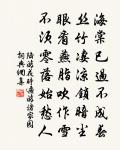 海棠已過不成春
丝竹凄凉鎖暗塵
眼看燕脂吹作雪
不須零落始愁人
陆游花時遍游諸家園
詞典網集